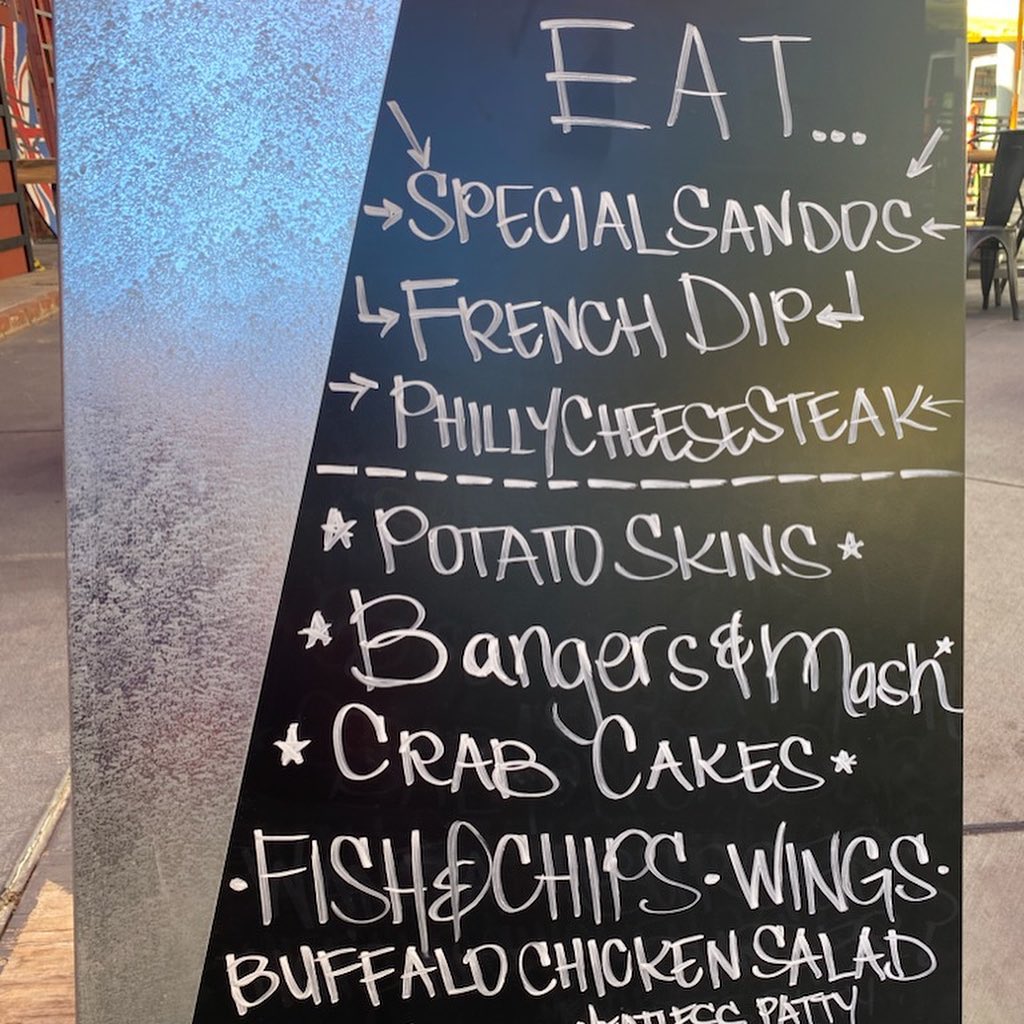 EAT...
SPECIAL SANDOS
FRENCH DIP
PHILLY CHEESESTEAK
POTATO SKINS
Bangers & Mash
CRAB CAKES
· FISH & CHIPS · WINGS ·
BUFFALO CHICKEN SALAD
MEATLESS PATTY